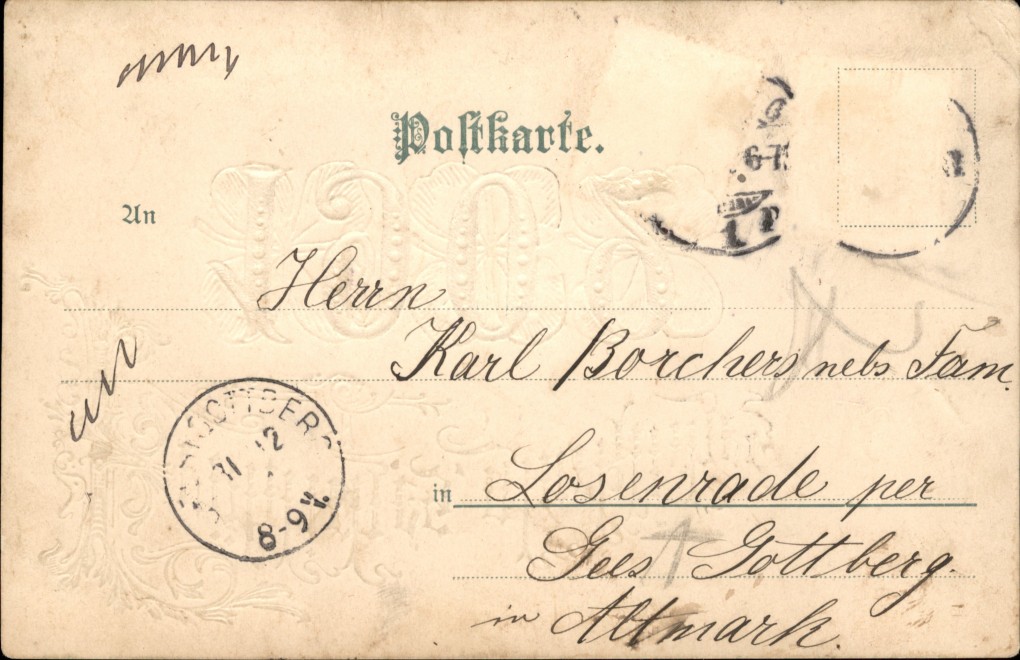 Postkarte.
An
Herrn
Karl Borchers nebs Fam.
in Losenrade per
Gees Gottberg.
in Altmark.
31 12
8-9V.